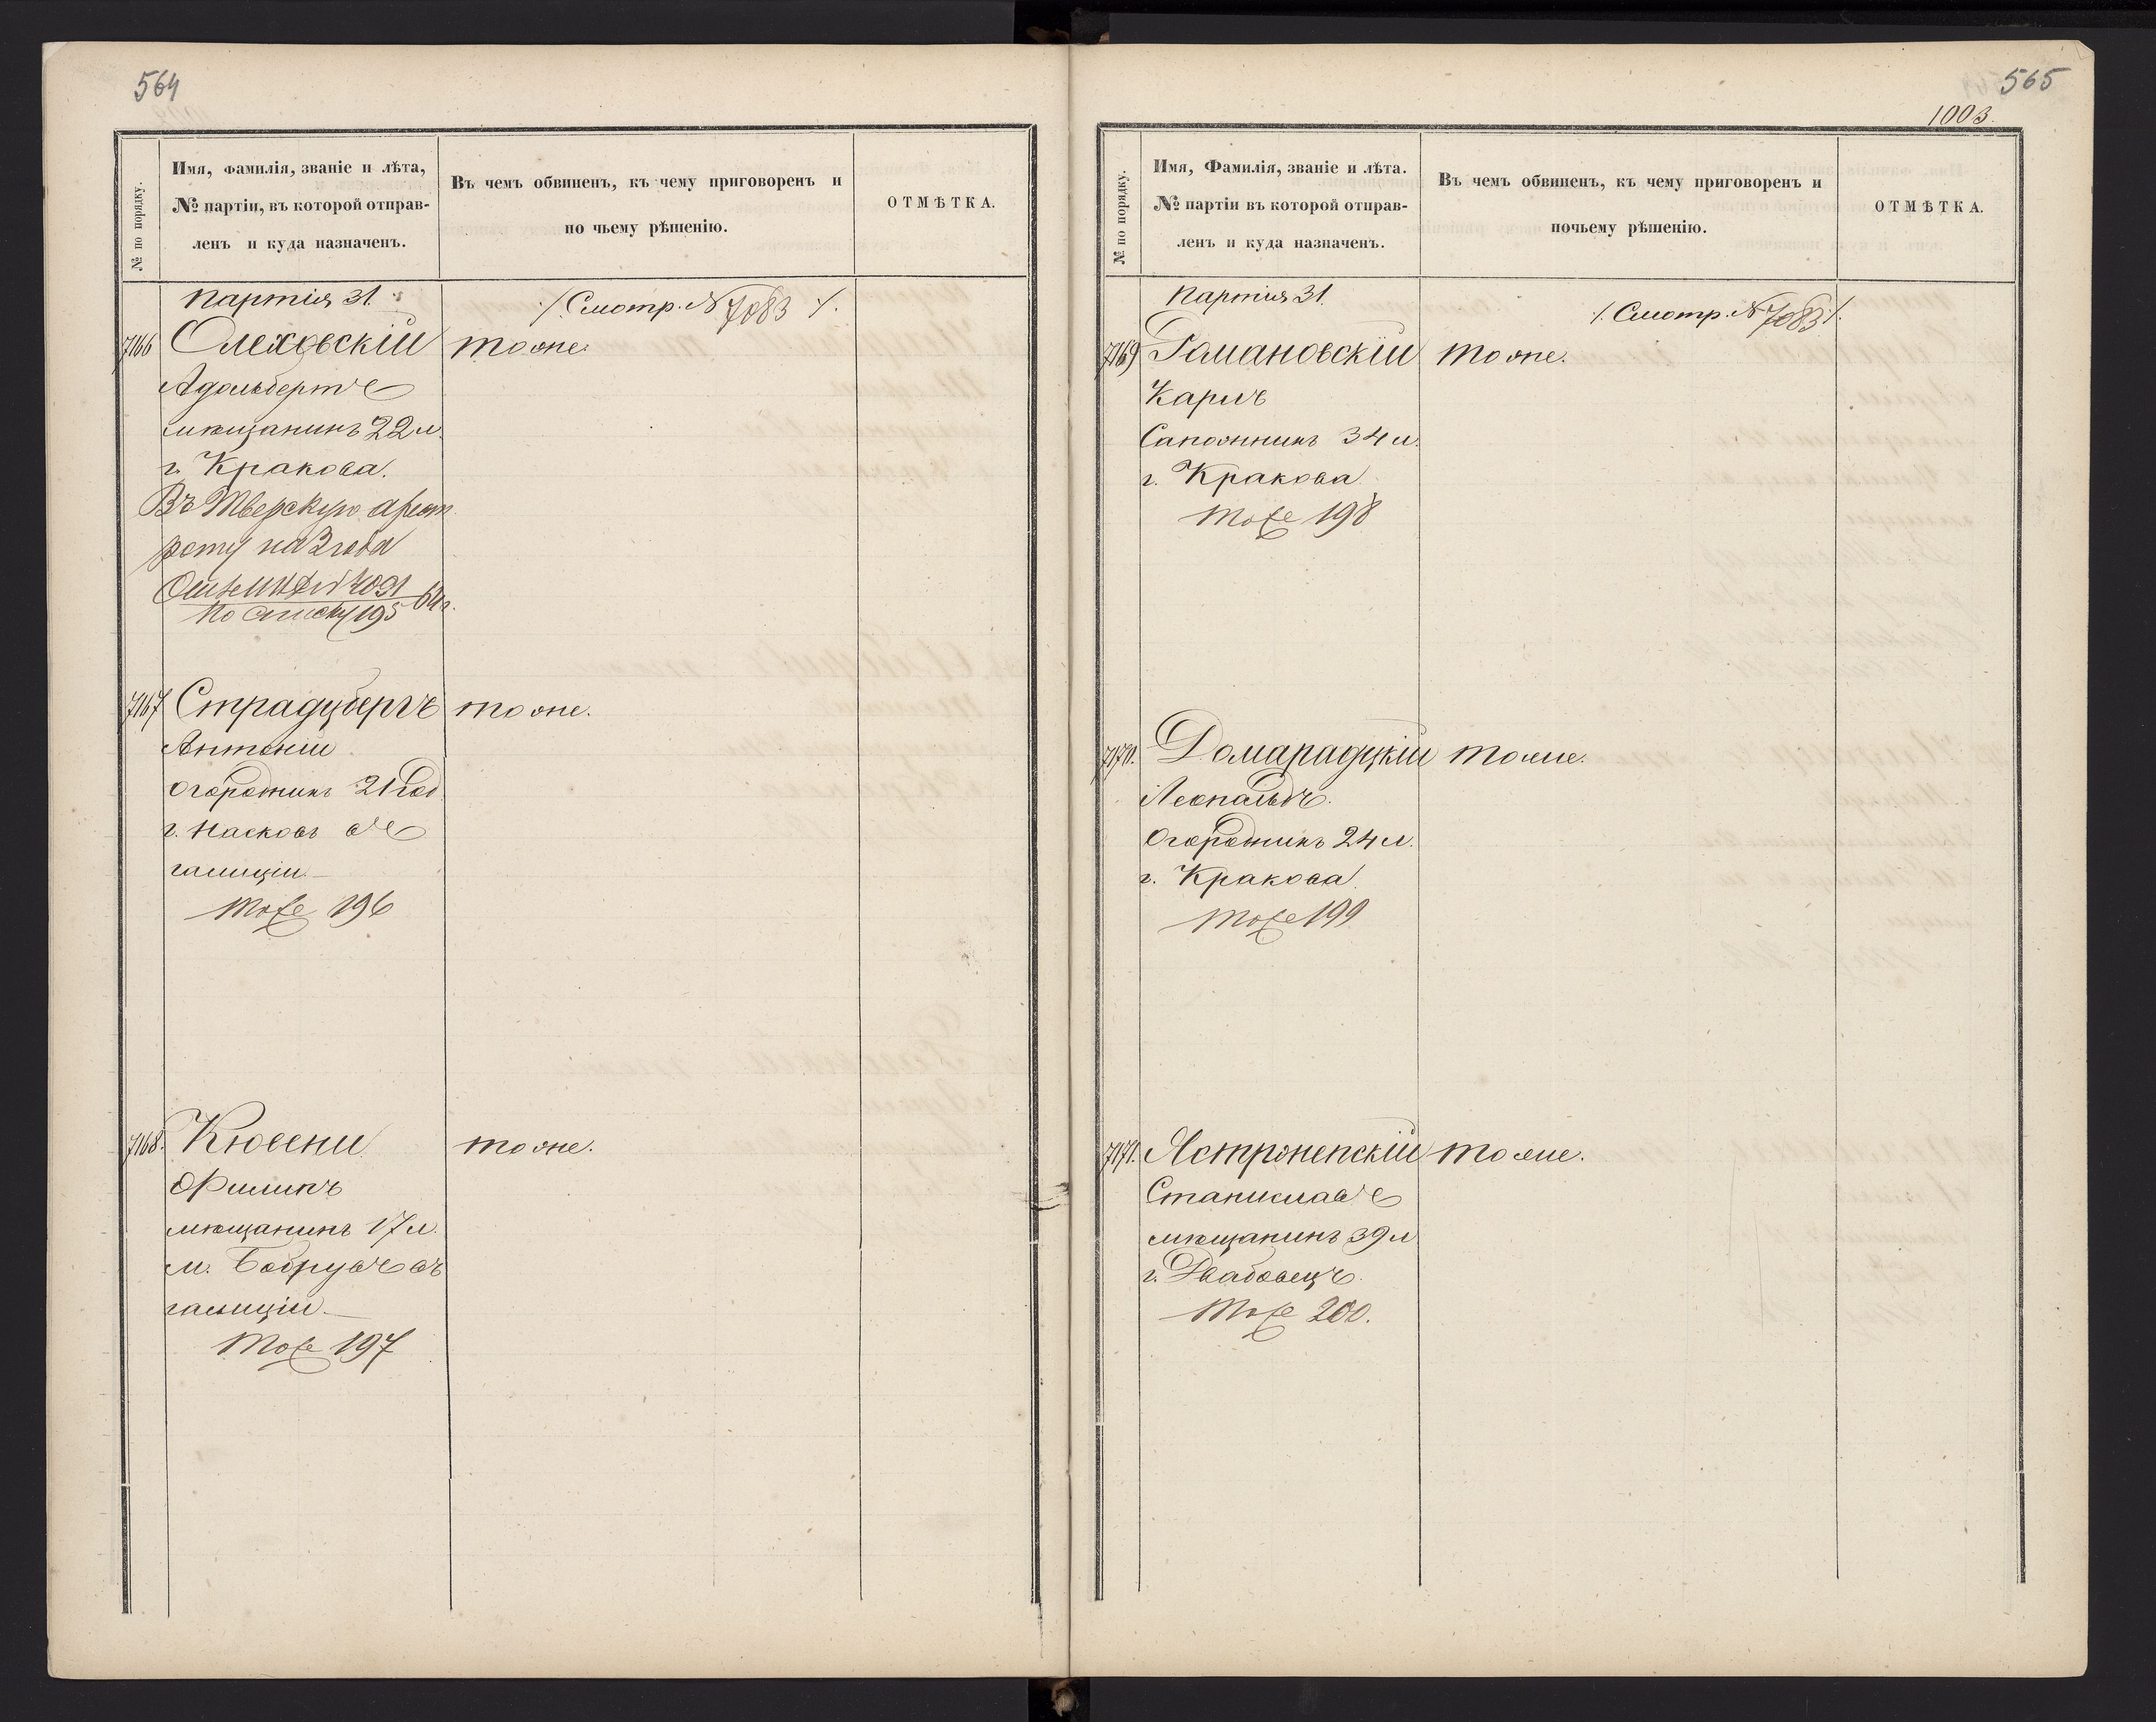 564
№ по порядку.
Имя, фамилія, званіе и лѣта,
№ партіи, въ которой отправ-
ленъ и куда назначенъ.
Въ чемъ обвиненъ, къ чему приговоренъ и
по чьему рѣшенію.
ОТМѢТКА.
Партія 31.
/. Смотр. № 7083 /.
7166 Олеховскій тоже.
Адольбертъ
мѣщанинъ 22 л.
г. Кракова.
Въ Тверскую арест.
роту на 3 года
по списку 195 64 г.
7167 Страдцбергъ тоже.
Антоній
Огородникъ 21 год
г. Насковъ въ
галиціи.
Тоже 196
7168. Кювени тоже.
Филипъ
мѣщанинъ 17 л.
м. Бобрувъ въ
галиціи.
Тоже 197
565
1003.
№ по порядку.
Имя, Фамилія, званіе и лѣта.
№ партіи въ которой отправ-
ленъ и куда назначенъ.
Въ чемъ обвиненъ, къ чему приговоренъ и
почьему рѣшенію.
ОТМѢТКА.
Партія 31.
/. Смотр. № 7083 /.
7169 Романовскій тоже.
Карлъ
Сапожникъ 34 л.
г. Кракова
Тоже 198
7170. Домарадцкій тоже.
Леопольдъ.
Огородникъ 24 л.
г. Кракова.
Тоже 199
7171. Ястрженпскій тоже.
Станиславъ
мѣщанинъ 39 л
г.
Тоже 200.